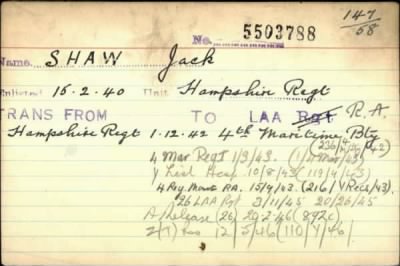 147
58
No. 5503788
Name. SHAW Jack
Enlisted 15.2.40 Unit Hampshire Regt
TRANS FROM TO LAA Rgt R.A.
Hampshire Regt 1.12.42 4th Maritime Bty
4 Mar Regt 1/3/43.
Y List Hosp 10/8/43 (119/4/43)
4 Rgy Mar RA. 15/9/43. (216/Y Recs/43).
26 LAA Rgt 3/11/45 20/26/45
A/Release (26) 20-2-46 (892c)
Z(T) Res 12/5/46 (110/Y/46)